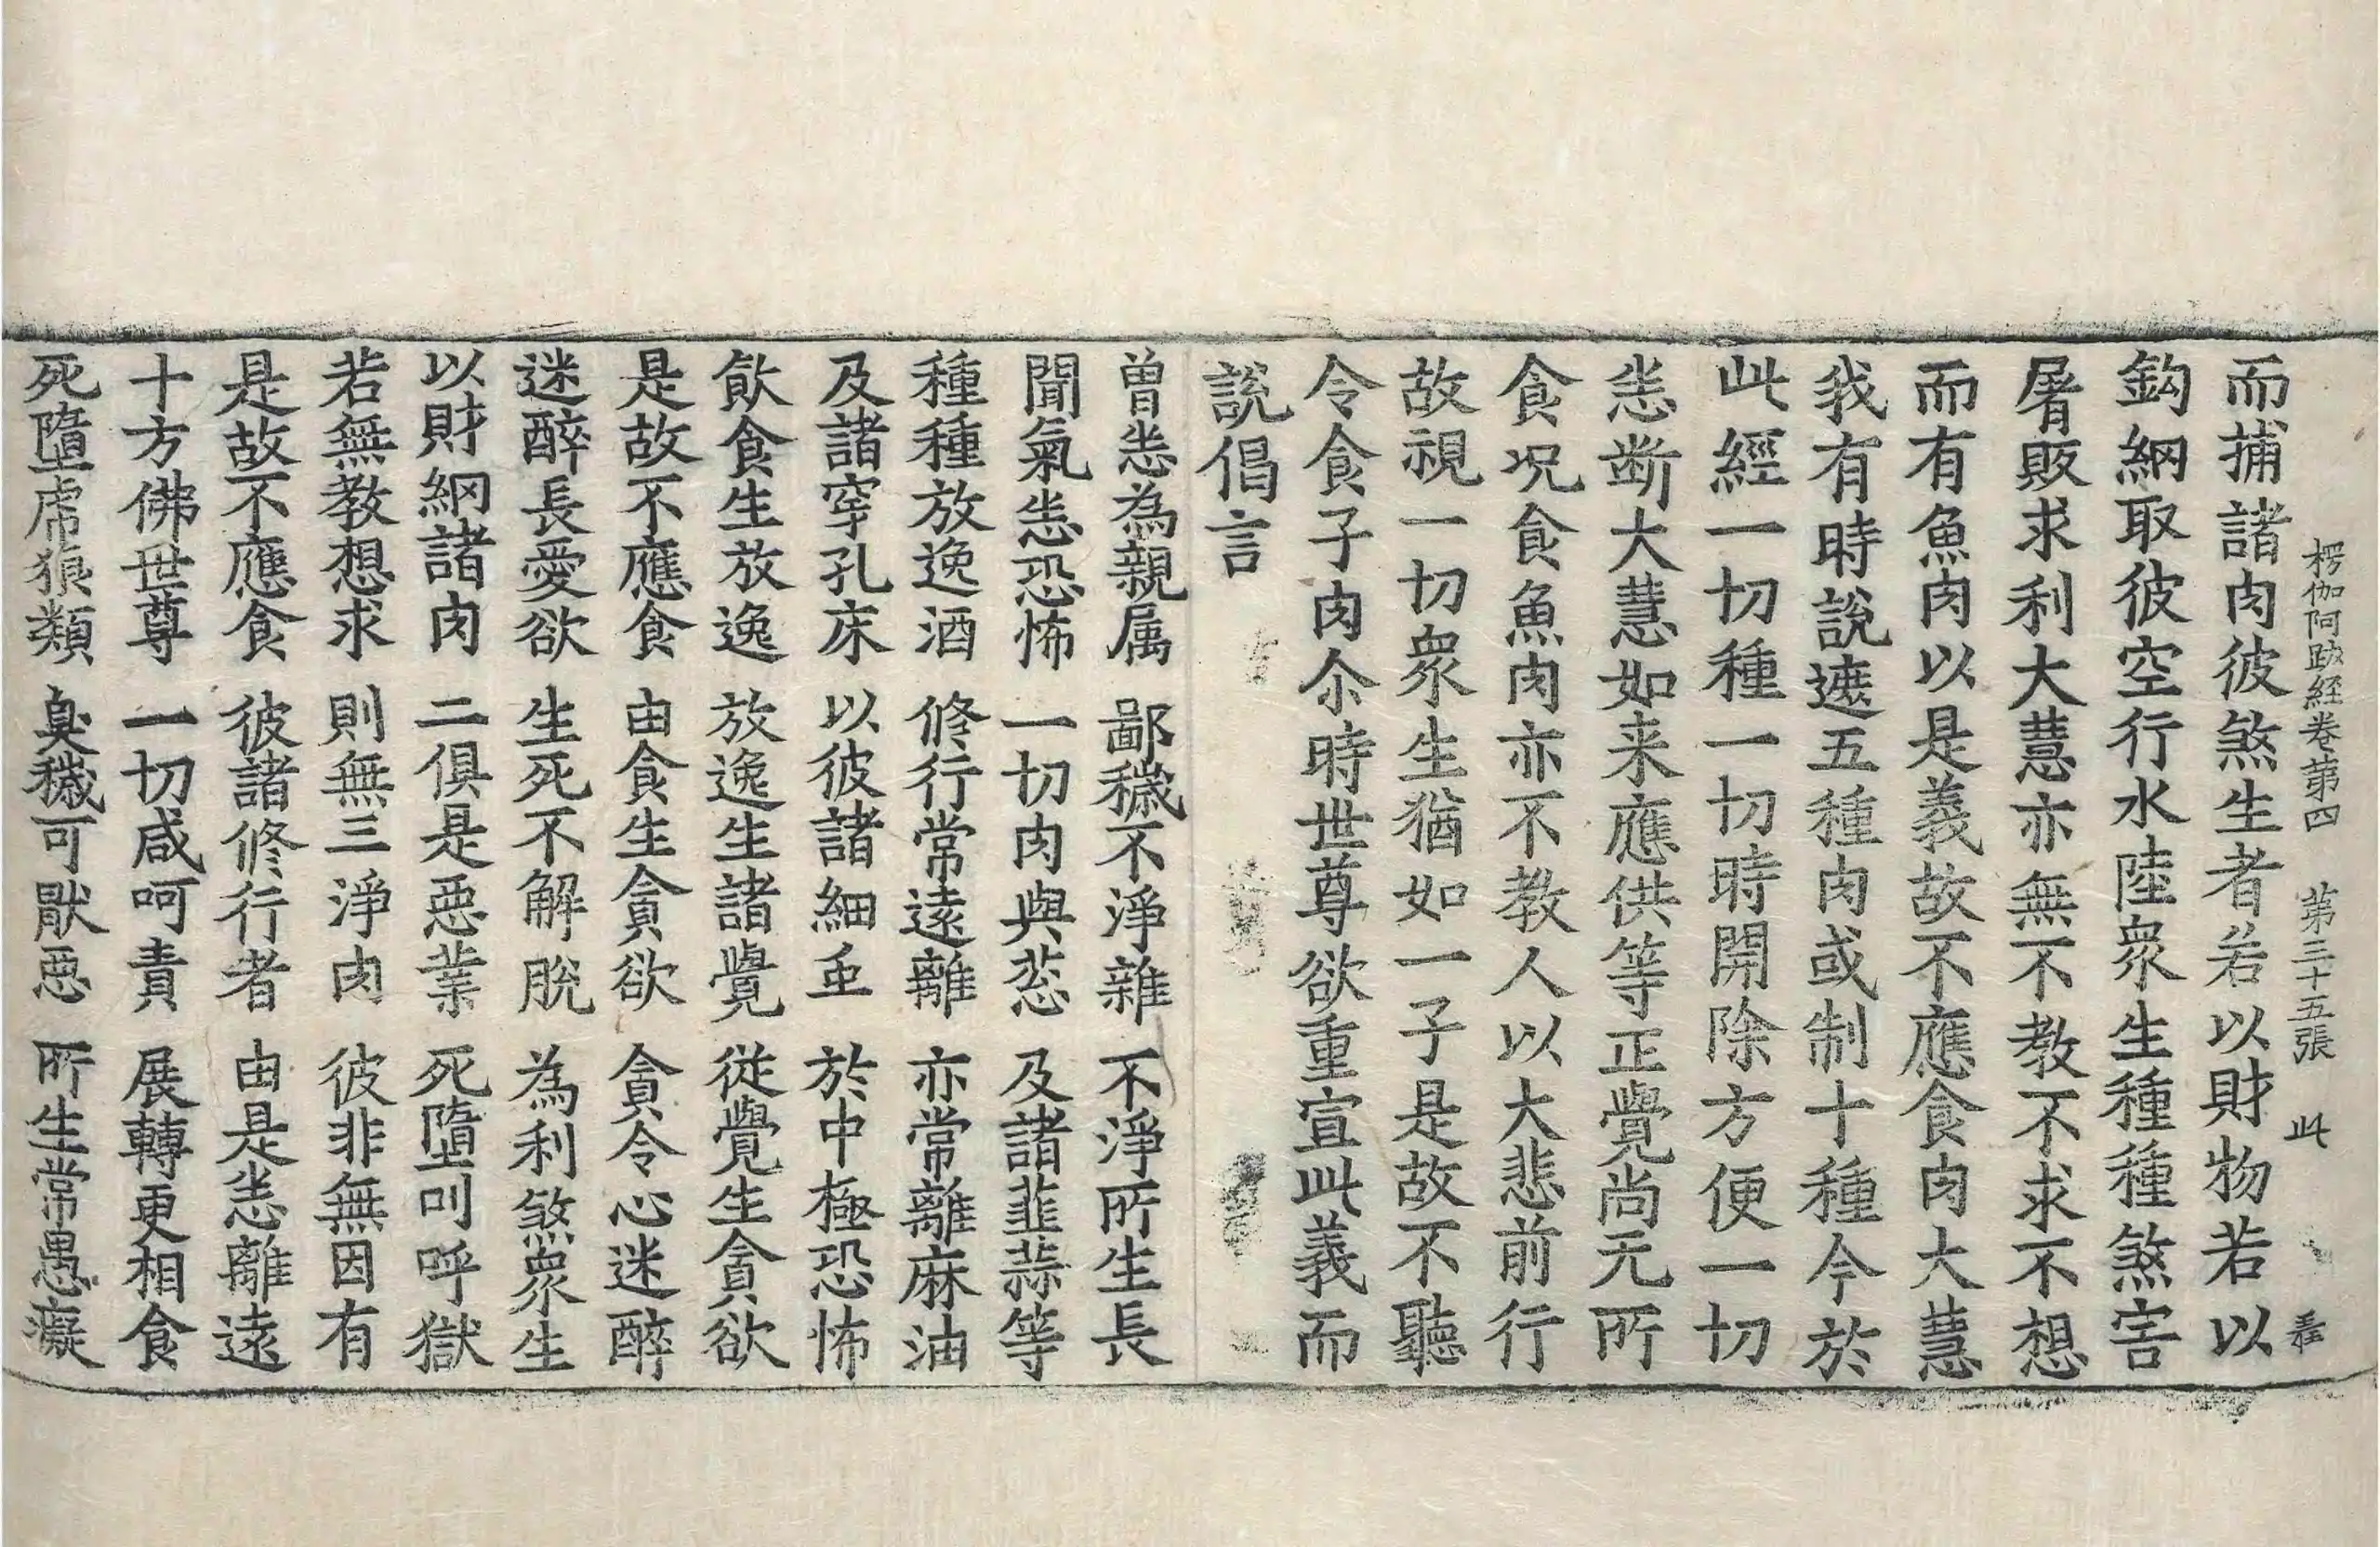 楞伽阿跋経卷苐四 苐三十五張 此
而捕諸肉彼煞生者若以財物若以
鈎網取彼空行水陸衆生種種煞害
屠販求利大慧亦無不教不求不想
而有魚肉以是義故不應食肉大慧
我有時說遮五種肉或制十種今於
此經一切種一切時開除方便一切
悉断大慧如来應供等正覺尚无所
食况食魚肉亦不教人以大悲前行
故視一切衆生猶如一子是故不聽
令食子肉尒時世尊欲重宣此義而
說偈言
曽悉為親属 鄙穢不淨雜 不淨所生長
聞氣悉恐怖 一切肉與葱 及諸韮蒜等
種種放逸酒 修行常遠離 亦常離麻油
及諸穿孔床 以彼諸細虫 於中極恐怖
飲食生放逸 放逸生諸覺 従覺生貪欲
是故不應食 由食生貪欲 貪令心迷醉
迷醉長愛欲 生死不解脫 為利煞衆生
以財網諸肉 二俱是惡業 死墮叫呼獄
若無教想求 則無三淨肉 彼非無因有
是故不應食 彼諸修行者 由是悉離遠
十方佛世尊 一切咸呵責 展轉更相食
死墮虎狼類 臭穢可猒惡 所生常愚癡